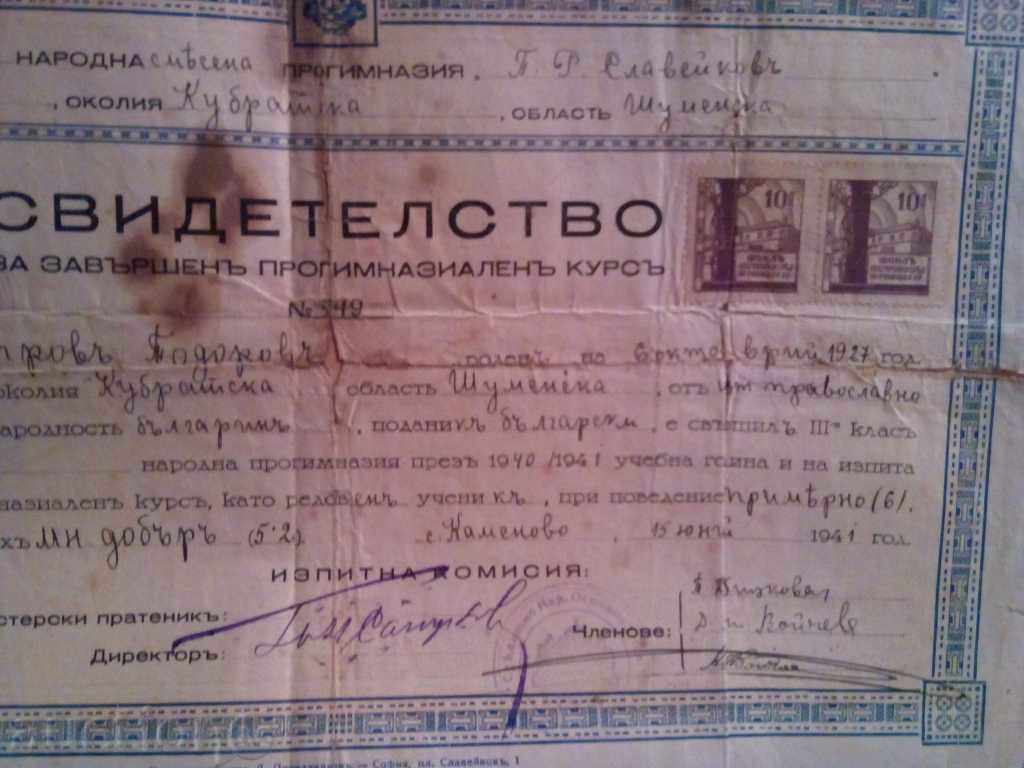 НАРОДНА смѣсена ПРОГИМНАЗИЯ „П. Р. Славейковъ
, ОКОЛИЯ Кубратска , ОБЛАСТЬ Шуменска
СВИДЕТЕЛСТВО
10 10
ЗА ЗАВЪРШЕНЪ ПРОГИМНАЗИАЛЕНЪ КУРСЪ
№ 549
Тодоровъ роденъ на 1927 год.
околия Кубратска област Шуменска , отъ изт. православно
народность българинъ , поданикъ български , е свършилъ III класъ
народна прогимназия презъ 1940/1941 учебна година и на изпита
назиаленъ курсъ, като редовенъ ученикъ , при поведение примѣрно (6).
хъ мн добъръ (5·2). с. Каменово , 15 юний 1941 год.
ИЗПИТНА КОМИСИЯ:
стерски пратеникъ:
Членове:
Директоръ:
— София, пл. Славейковъ, 1